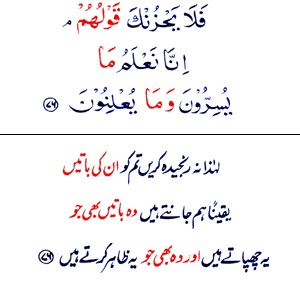 فَلَا يَحْزُنْكَ قَوْلُهُمْ ۘ
اِنَّا نَعْلَمُ مَا
يُسِرُّوْنَ وَمَا يُعْلِنُوْنَ ﴿۷۶﴾
لہٰذا نہ رنجیدہ کریں تم کو ان کی باتیں
یقینًا ہم جانتے ہیں وہ باتیں بھی جو
یہ چھپاتے ہیں اور وہ بھی جو یہ ظاہر کرتے ہیں ﴿۷۶﴾